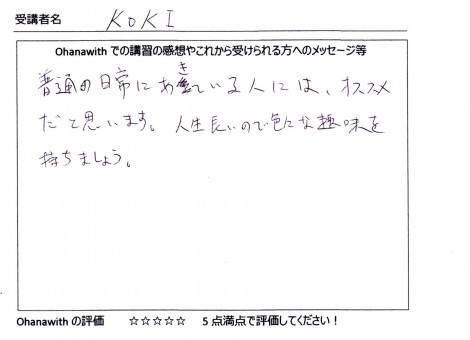 受講者名 KOKI
Ohanawith での講習の感想やこれから受けられる方へのメッセージ等
普通の日常にあきている人には、オススメ
だと思います。人生長いので色々な趣味を
持ちましょう。
Ohanawith の評価 ☆☆☆☆☆ 5点満点で評価してください！